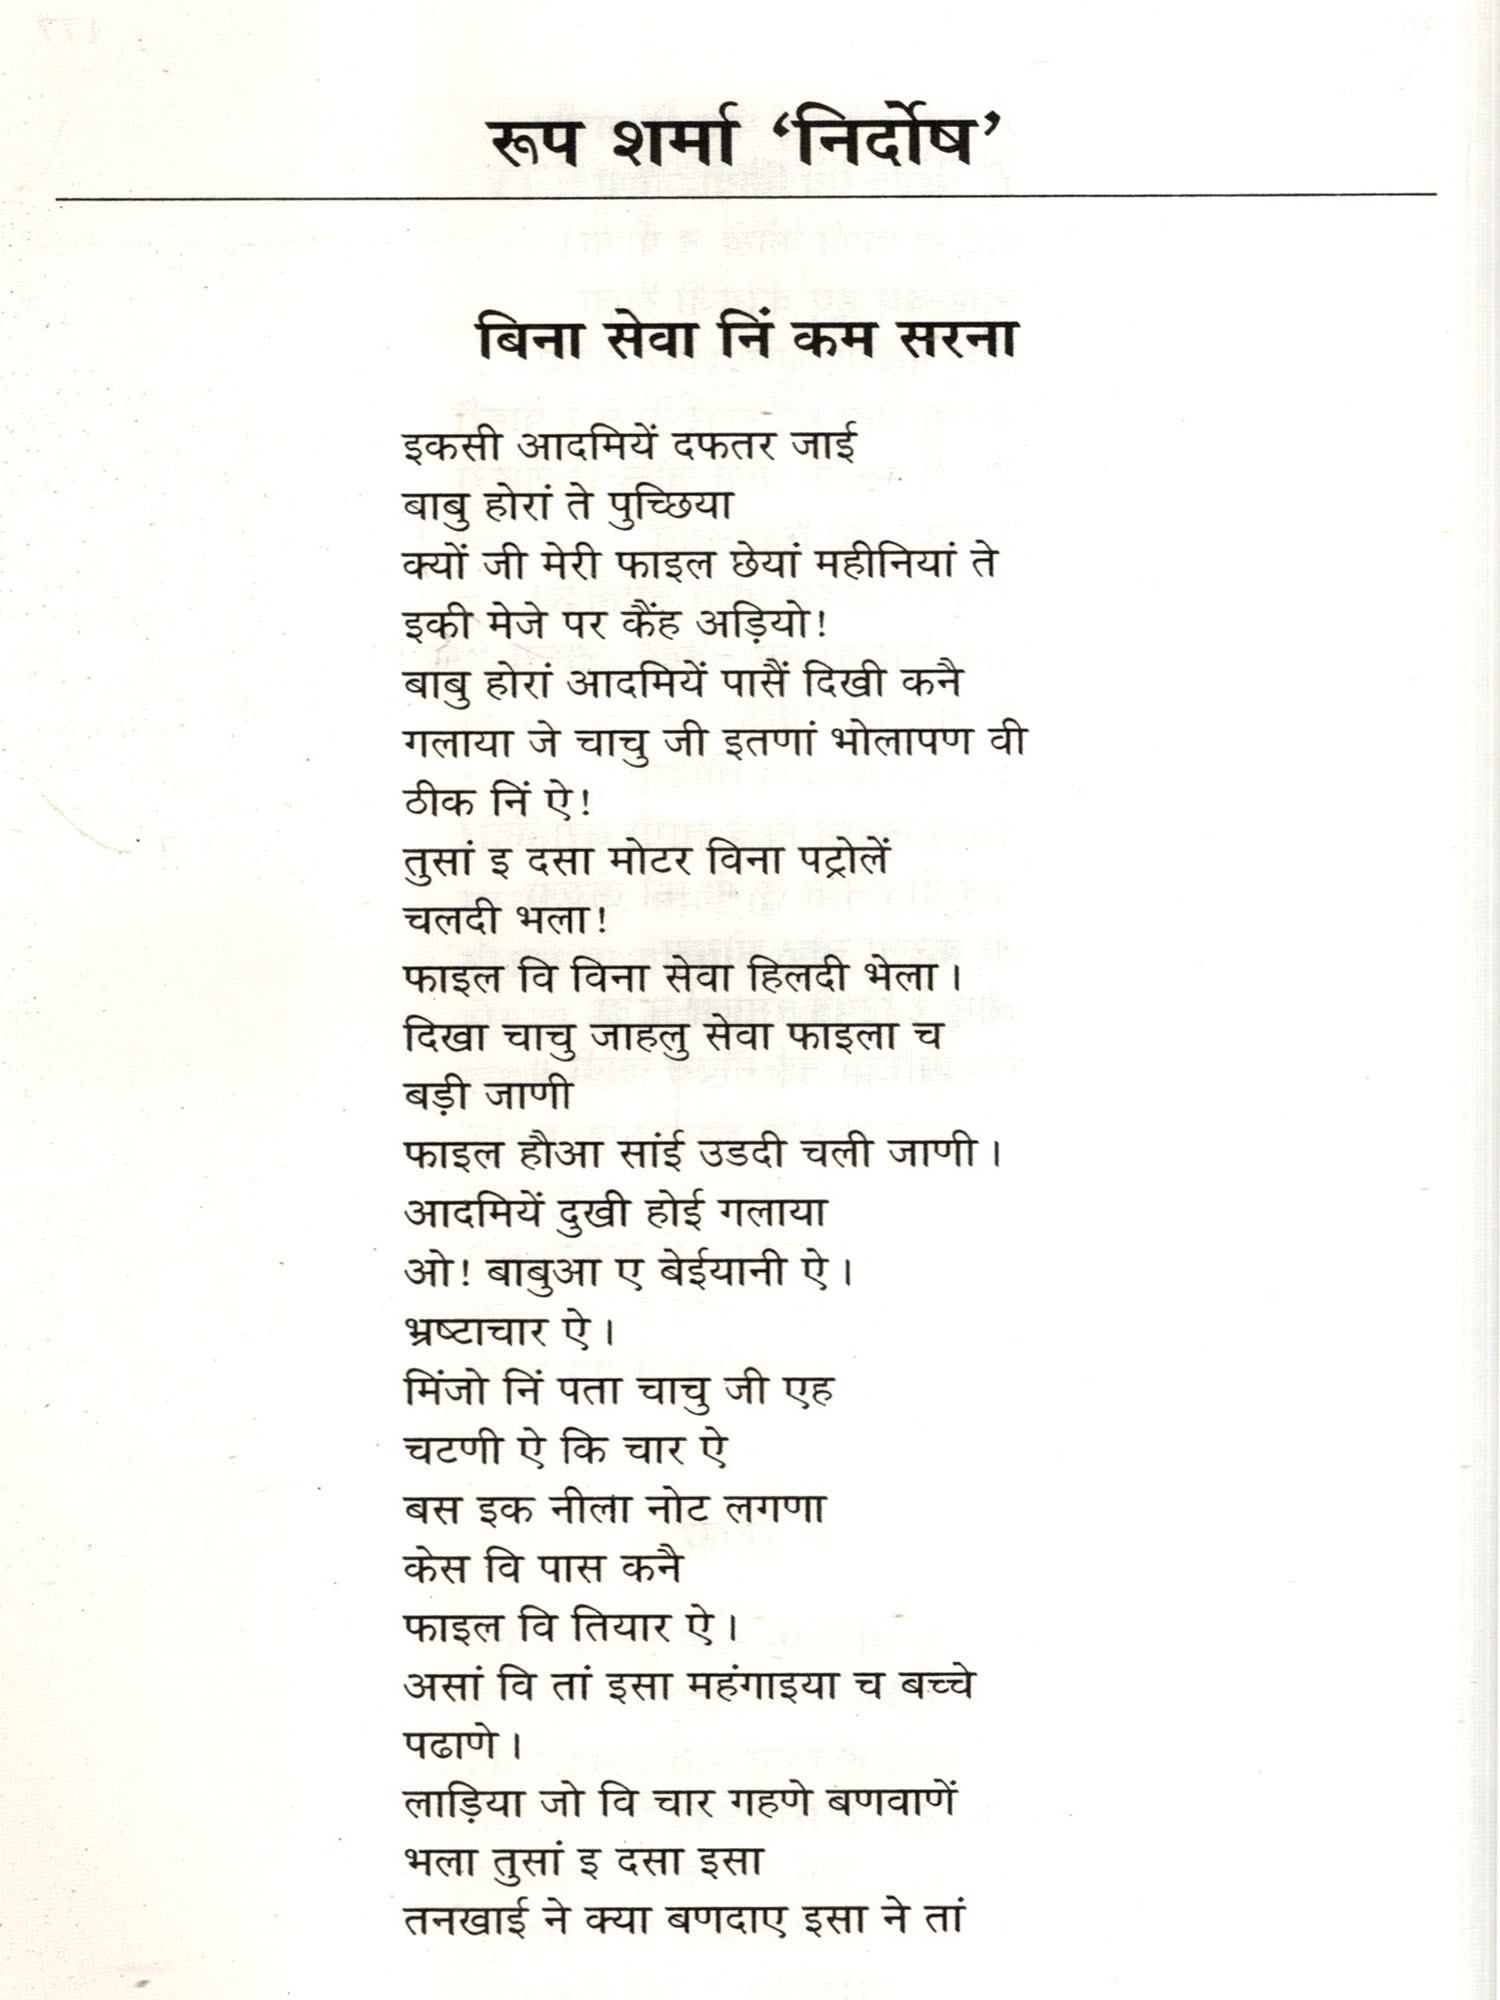 रूप शर्मा ‘निर्दोष’
बिना सेवा निं कम सरना
इकसी आदमियें दफतर जाई
बाबु होरां ते पुच्छिया
क्यों जी मेरी फाइल छेयां महीनियां ते
इकी मेजे पर कैंह अड़ियो!
बाबु होरां आदमियें पासैं दिखी कनै
गलाया जे चाचु जी इतणां भोलापण वी
ठीक निं ऐ!
तुसां इ दसा मोटर विना पट्रोलें
चलदी भला!
फाइल वि विना सेवा हिलदी भेला।
दिखा चाचु जाहलु सेवा फाइला च
बड़ी जाणी
फाइल हौआ सांई उडदी चली जाणी।
आदमियें दुखी होई गलाया
ओ! बाबुआ ए बेईयानी ऐ।
भ्रष्टाचार ऐ।
मिंजो निं पता चाचु जी एह
चटणी ऐ कि चार ऐ
बस इक नीला नोट लगणा
केस वि पास कनै
फाइल वि तियार ऐ।
असां वि तां इसा महंगाइया च बच्चे
पढाणे।
लाड़िया जो वि चार गहणे बणवाणें
भला तुसां इ दसा इसा
तनखाई ने क्या बणदाए इसा ने तां